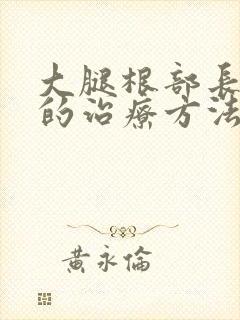 大腿根部長
的治療方法
黃永倫